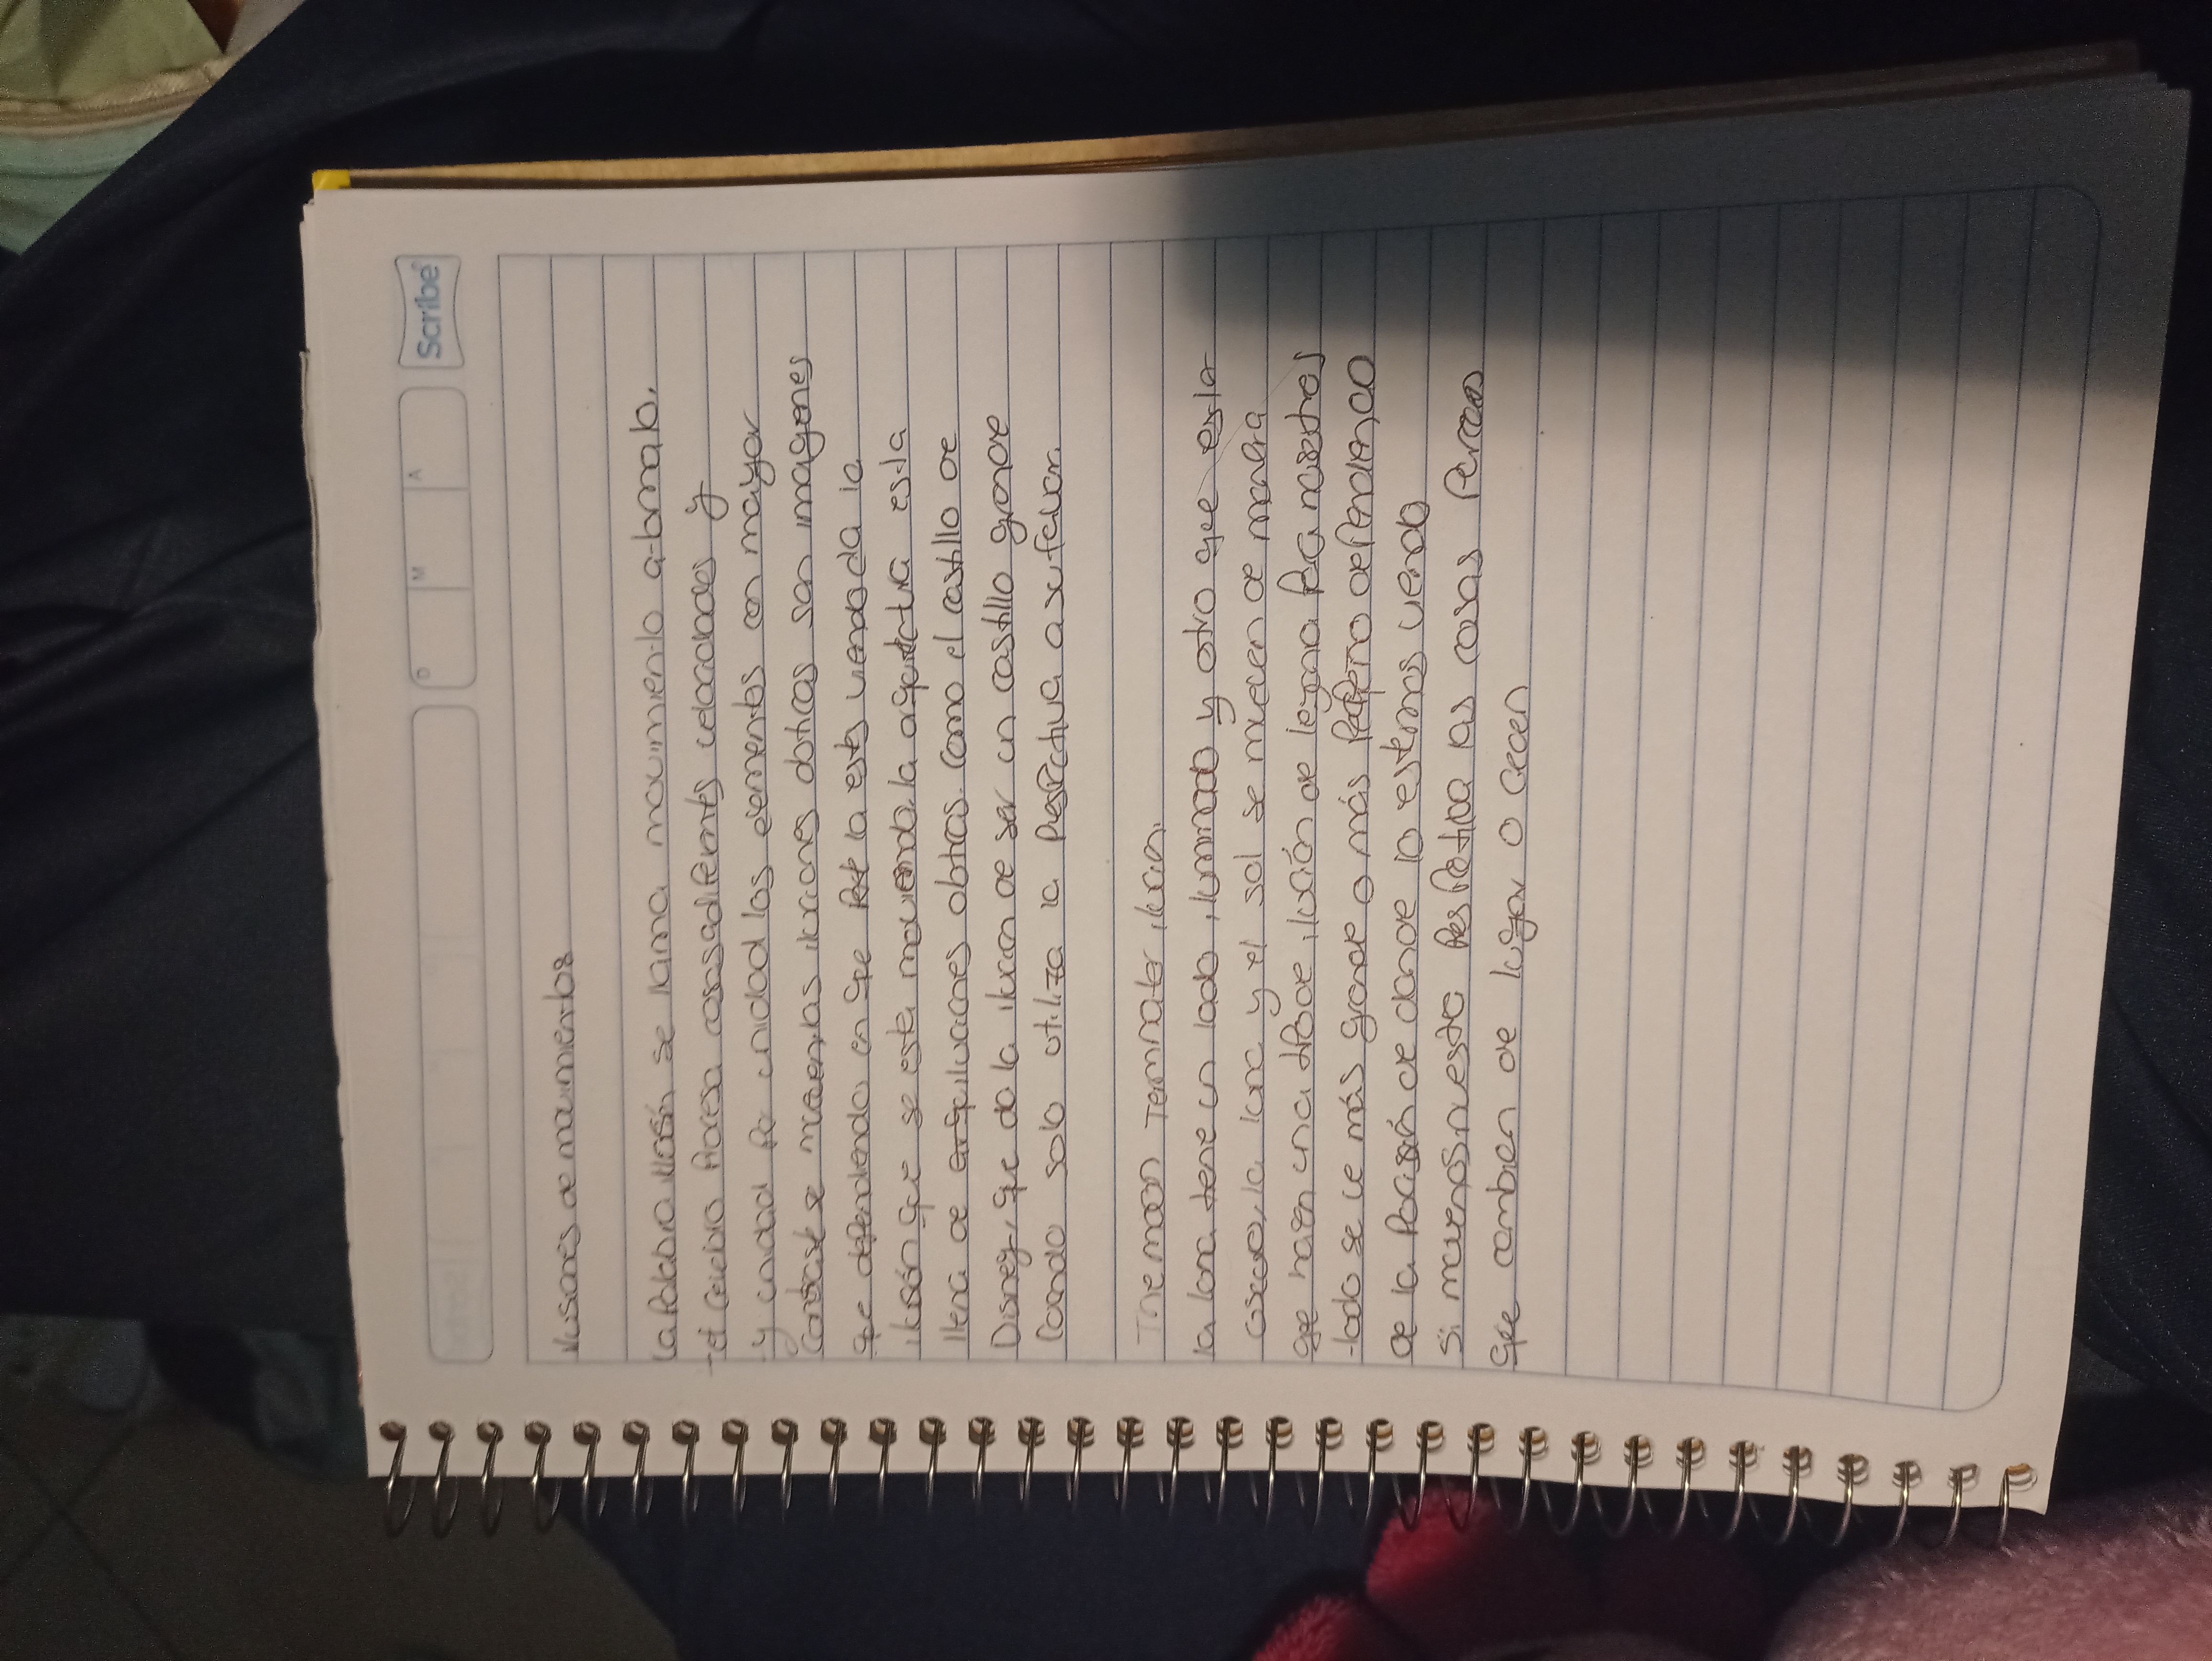 Scribe
D M A
Ilusiones de movimientos
la Palabra ilusión se llama movimiento a-bmab.
el cerebro Procesa cosas diferents velocidades y
y cridad Por cridad los elementos con mayor
Contraste se mueven, las ilusiones doticas son imagenes
que dependiendo en que Part la estes viendo da la
ilusión que se esta moviendo. la arquitectua esta
llena de eequiluciones obticas. Como el castillo de
Disney, que da la ilucion de ser un castillo grande
Cuando solo utiliza la Prespectiva a su favor.
The moon Terminator ilucion.
la luna tiene un lado iluminado y otro que esta
oscuro, la luna y el sol se mueven de manera
que hacen una doble ilución de legana Para nuestros
lado se ve más grande o más Pequeño dePendiendo
de la Posisión de donde lo estemos viendo
Si movemos nuestra PersPectiva las cosas Parecen
que cambien de lugar o crecen